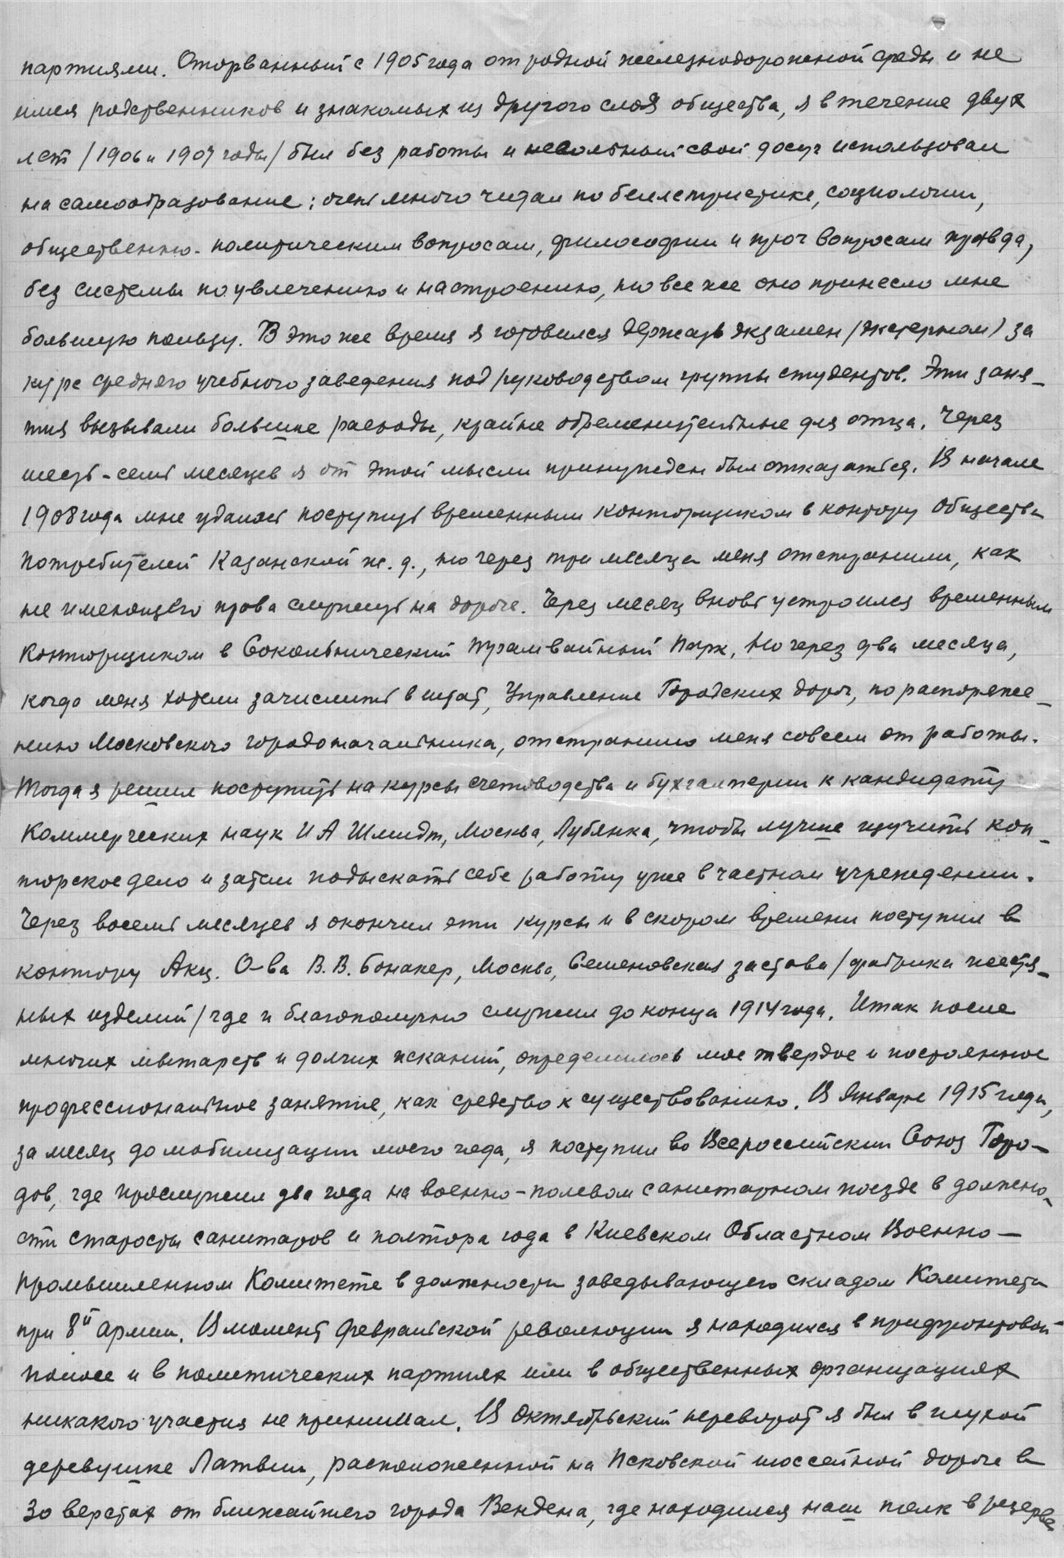 партиями. Оторванный с 1905 года от родной железнодорожной среды и не
имея родственников и знакомых из другого слоя общества, я в течение двух
лет /1906 и 1907 годы/ был без работы и невольный свой досуг использовал
на самообразование: очень много читал по беллетристике, социологии,
общественно-политическим вопросам, философии и проч вопросам правда,
без системы по увлечению и настроению, но все же оно принесло мне
большую пользу. В это же время я готовился держать экзамен /экстерном/ за
курс среднего учебного заведения под руководством группы студентов. Эти заня-
тия вызывали большие расходы, крайне обременительные для отца. Через
шесть-семь месяцев я от этой мысли принужден был отказаться. В начале
1908 года мне удалось поступить временным конторщиком в контору Общества
потребителей Казанской ж. д., но через три месяца меня отстранили, как
не имеющего права служить на дороге. Через месяц вновь устроился временным
конторщиком в Сокольнический Трамвайный Парк, но через два месяца,
когда меня хотели зачислить в штат, Управление Городских дорог, по распоряже-
нию Московского градоначальника, отстранило меня совсем от работы.
Тогда я решил поступить на курсы счетоводства и бухгалтерии к кандидату
Коммерческих наук И А Шмидт, Москва, Лубянка, чтобы лучше изучить кон-
торское дело и затем подыскать себе работу уже в частном учреждении.
Через восемь месяцев я окончил эти курсы и в скором времени поступил в
контору Акц. О-ва В. В. Бонакер, Москва, Семеновская застава /фабрика жестя-
ных изделий/ где и благополучно служил до конца 1914 года. Итак после
многих мытарств и долгих исканий, определилось мое твердое и постоянное
профессиональное занятие, как средство к существованию. В Январе 1915 года,
за месяц до мобилизации моего года, я поступил во Всероссийский Союз Горо-
дов, где прослужил два года на военно-полевом санитарном поезде в должно-
сти старосты санитаров и полтора года в Киевском Областном Военно-
промышленном Комитете в должности заведывающего складом Комитета
при 8й Армии. В момент февральской революции я находился в прифронтовой
полосе и в политических партиях или в общественных организациях
никакого участия не принимал. В Октябрьский переворот я был в глухой
деревушке Латвии, расположенной на Псковской шоссейной дороге в
30 верстах от ближайшего города Вендена, где находился наш полк в резерве